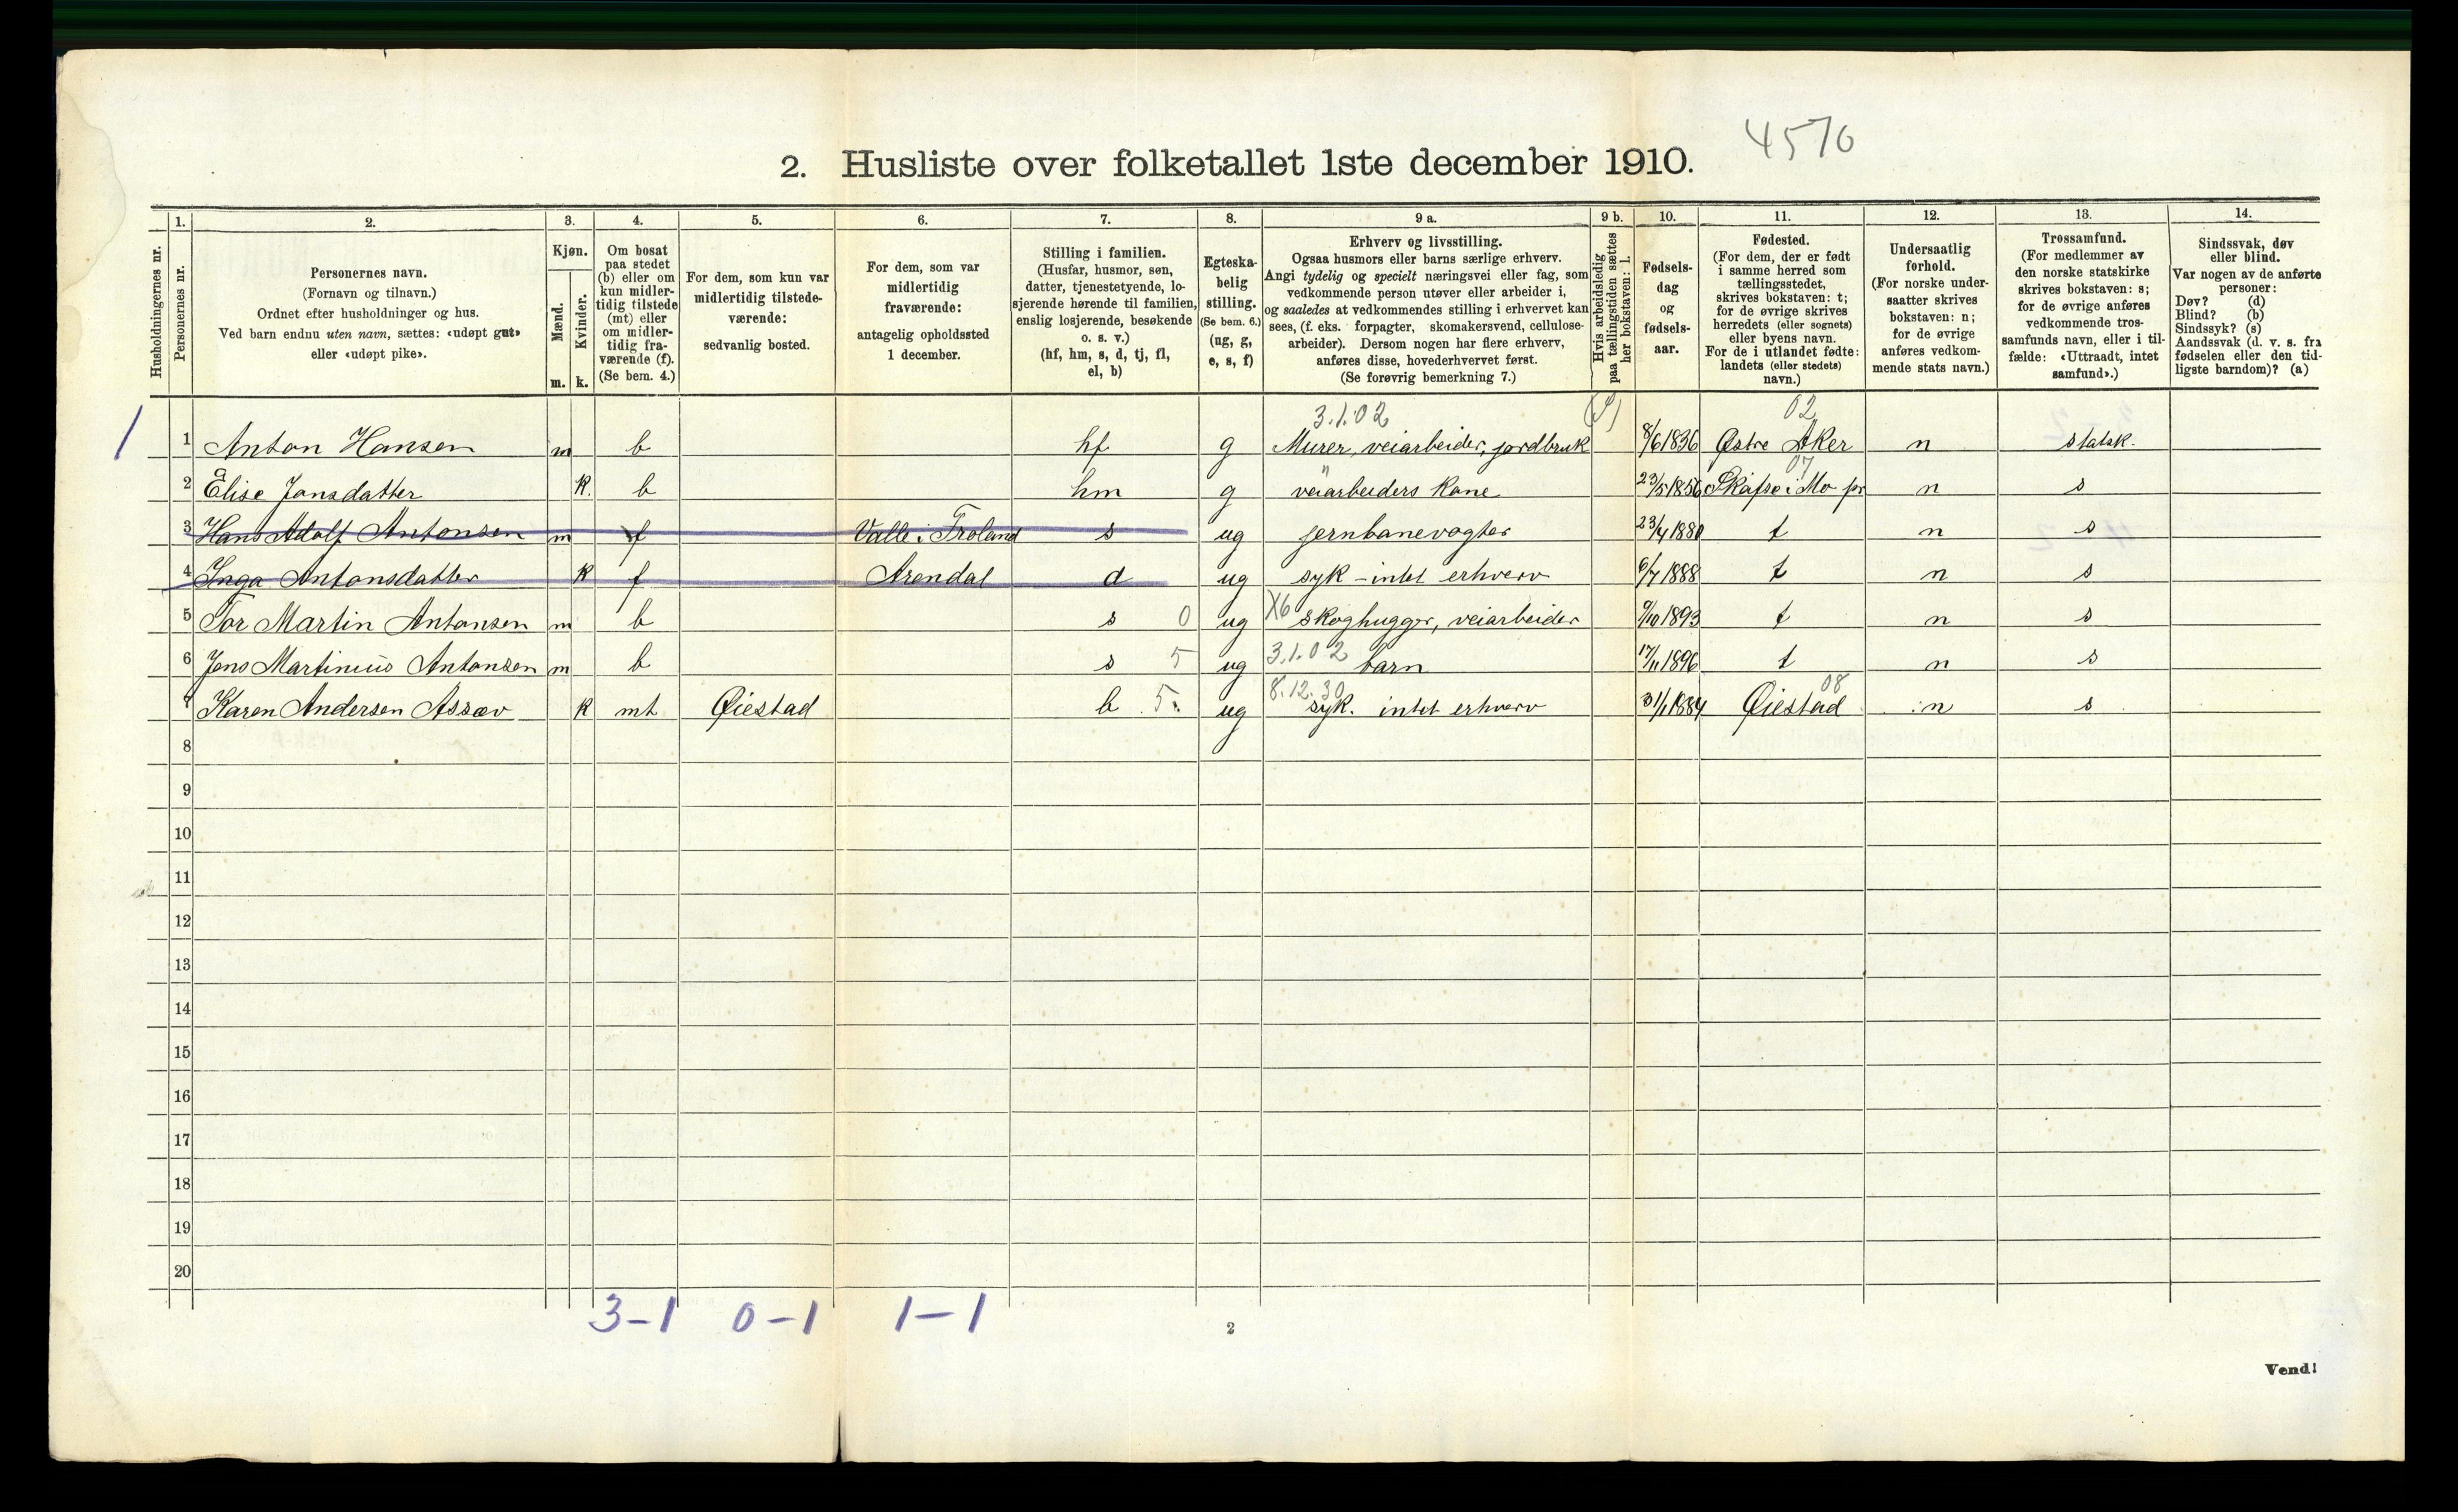 4570
2. Husliste over folketallet 1ste december 1910.
Husholdningernes nr.
1. Personernes nr.
2. Personernes navn.
(Fornavn og tilnavn.)
Ordnet efter husholdninger og hus.
Ved barn endnu uten navn, sættes: «udøpt gut»
eller «udøpt pike».
3. Kjøn.
Mænd. m.
Kvinder. k.
4. Om bosat
paa stedet
(b) eller om
kun midler-
tidig tilstede
(mt) eller
om midler-
tidig fra-
værende (f).
(Se bem. 4.)
5. For dem, som kun var
midlertidig tilstede-
værende:
sedvanlig bosted.
6. For dem, som var
midlertidig
fraværende:
antagelig opholdssted
1 december.
7. Stilling i familien.
(Husfar, husmor, søn,
datter, tjenestetyende, lo-
sjerende hørende til familien,
enslig losjerende, besøkende
o. s. v.)
(hf, hm, s, d, tj, fl,
el, b)
8. Egteska-
belig
stilling.
(Se bem. 6.)
(ug, g,
e, s, f)
9 a. Erhverv og livsstilling.
Ogsaa husmors eller barns særlige erhverv.
Angi tydelig og specielt næringsvei eller fag, som
vedkommende person utøver eller arbeider i,
og saaledes at vedkommendes stilling i erhvervet kan
sees, (f. eks. forpagter, skomakersvend, cellulose-
arbeider). Dersom nogen har flere erhverv,
anføres disse, hovederhvervet først.
(Se forøvrig bemerkning 7.)
9 b. Hvis arbeidsledig
paa tællingstiden sættes
her bokstaven: l.
10. Fødsels-
dag
og
fødsels-
aar.
11. Fødested.
(For dem, der er født
i samme herred som
tællingsstedet,
skrives bokstaven: t;
for de øvrige skrives
herredets (eller sognets)
eller byens navn.
For de i utlandet fødte:
landets (eller stedets)
navn.)
12. Undersaatlig
forhold.
(For norske under-
saatter skrives
bokstaven: n;
for de øvrige
anføres vedkom-
mende stats navn.)
13. Trossamfund.
(For medlemmer av
den norske statskirke
skrives bokstaven: s;
for de øvrige anføres
vedkommende tros-
samfunds navn, eller i til-
fælde: «Uttraadt, intet
samfund».)
14. Sindssvak, døv
eller blind.
Var nogen av de anførte
personer:
Døv? (d)
Blind? (b)
Sindssyk? (s)
Aandssvak (d. v. s. fra
fødselen eller den tid-
ligste barndom)? (a)
3.1.02 02
1 1 Anton Hansen m b hf g Murer, veiarbeider, jordbruk 8/6 1836 Østre Aker n statsk.
07
2 Elise Jonsdatter k. b hm g veiarbeiders kone 23/5 1856 Skafse i Mo pr n s
3 Hans Adolf Antonsen m f Valle i Froland s ug jernbanevogter 23/4 1880 t n s
4 Inga Antonsdatter k f Arendal d ug syk - intet erhverv 6/7 1888 t n s
5 Tor Martin Antonsen m b s 0 ug X6 skoghugger, veiarbeider 9/10 1893 t n s
6 Jens Martinius Antonsen m b s 5 ug 3.1.02 barn 17/11 1896 t n s
8.12.30 08
7 Karen Andersen Assæv k mt Øiestad b 5. ug syk. intet erhverv 31/1 1884 Øiestad n s
8
9
10
11
12
13
14
15
16
17
18
19
20
3-1 0-1 1-1
2
Vend!